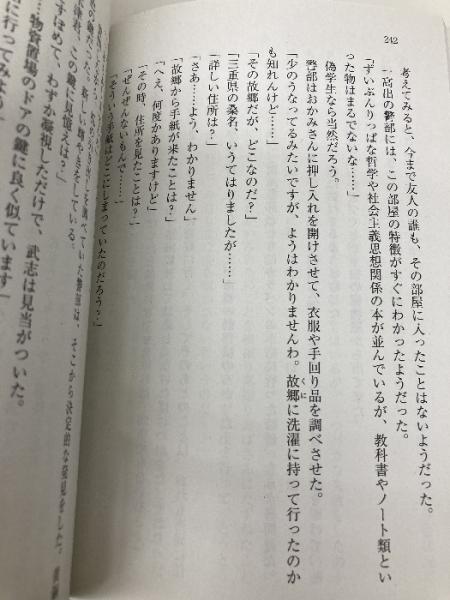 242
考えてみると、今まで友人の誰も、その部屋に入ったことはないようだった。
高出の警部には、この部屋の特徴がすぐにわかったようだった。
「ずいぶんりっぱな哲学や社会主義思想関係の本が並んでいるが、教科書やノート類とい
った物はまるでないな……」
偽学生なら当然だろう。
警部はおかみさんに押し入れを開けさせて、衣服や手回り品を調べさせた。
「少のうなってるみたいですが、ようはわかりませんわ。故郷に洗濯に持って行ったのか
くに
も知れんけど……」
「その故郷だが、どこなのだ？」
「三重県の桑名、いうてはりましたが……」
「詳しい住所は？」
「さあ……よう、わかりません」
「故郷から手紙が来たことは？」
「へえ、何度かありますけど」
「その時、住所を見たことは？」
「ぜんぜんないもんで……」
「そういう手紙はどこにしまっていたのだろう？」
を調べていた警部は、そこから決定的な発見をした。
新しい
をしている。
、この鍵に
ずか凝視しただけで、武志は見当がついた。
物置場のドアの鍵に良く似ています」
に行ってみよ